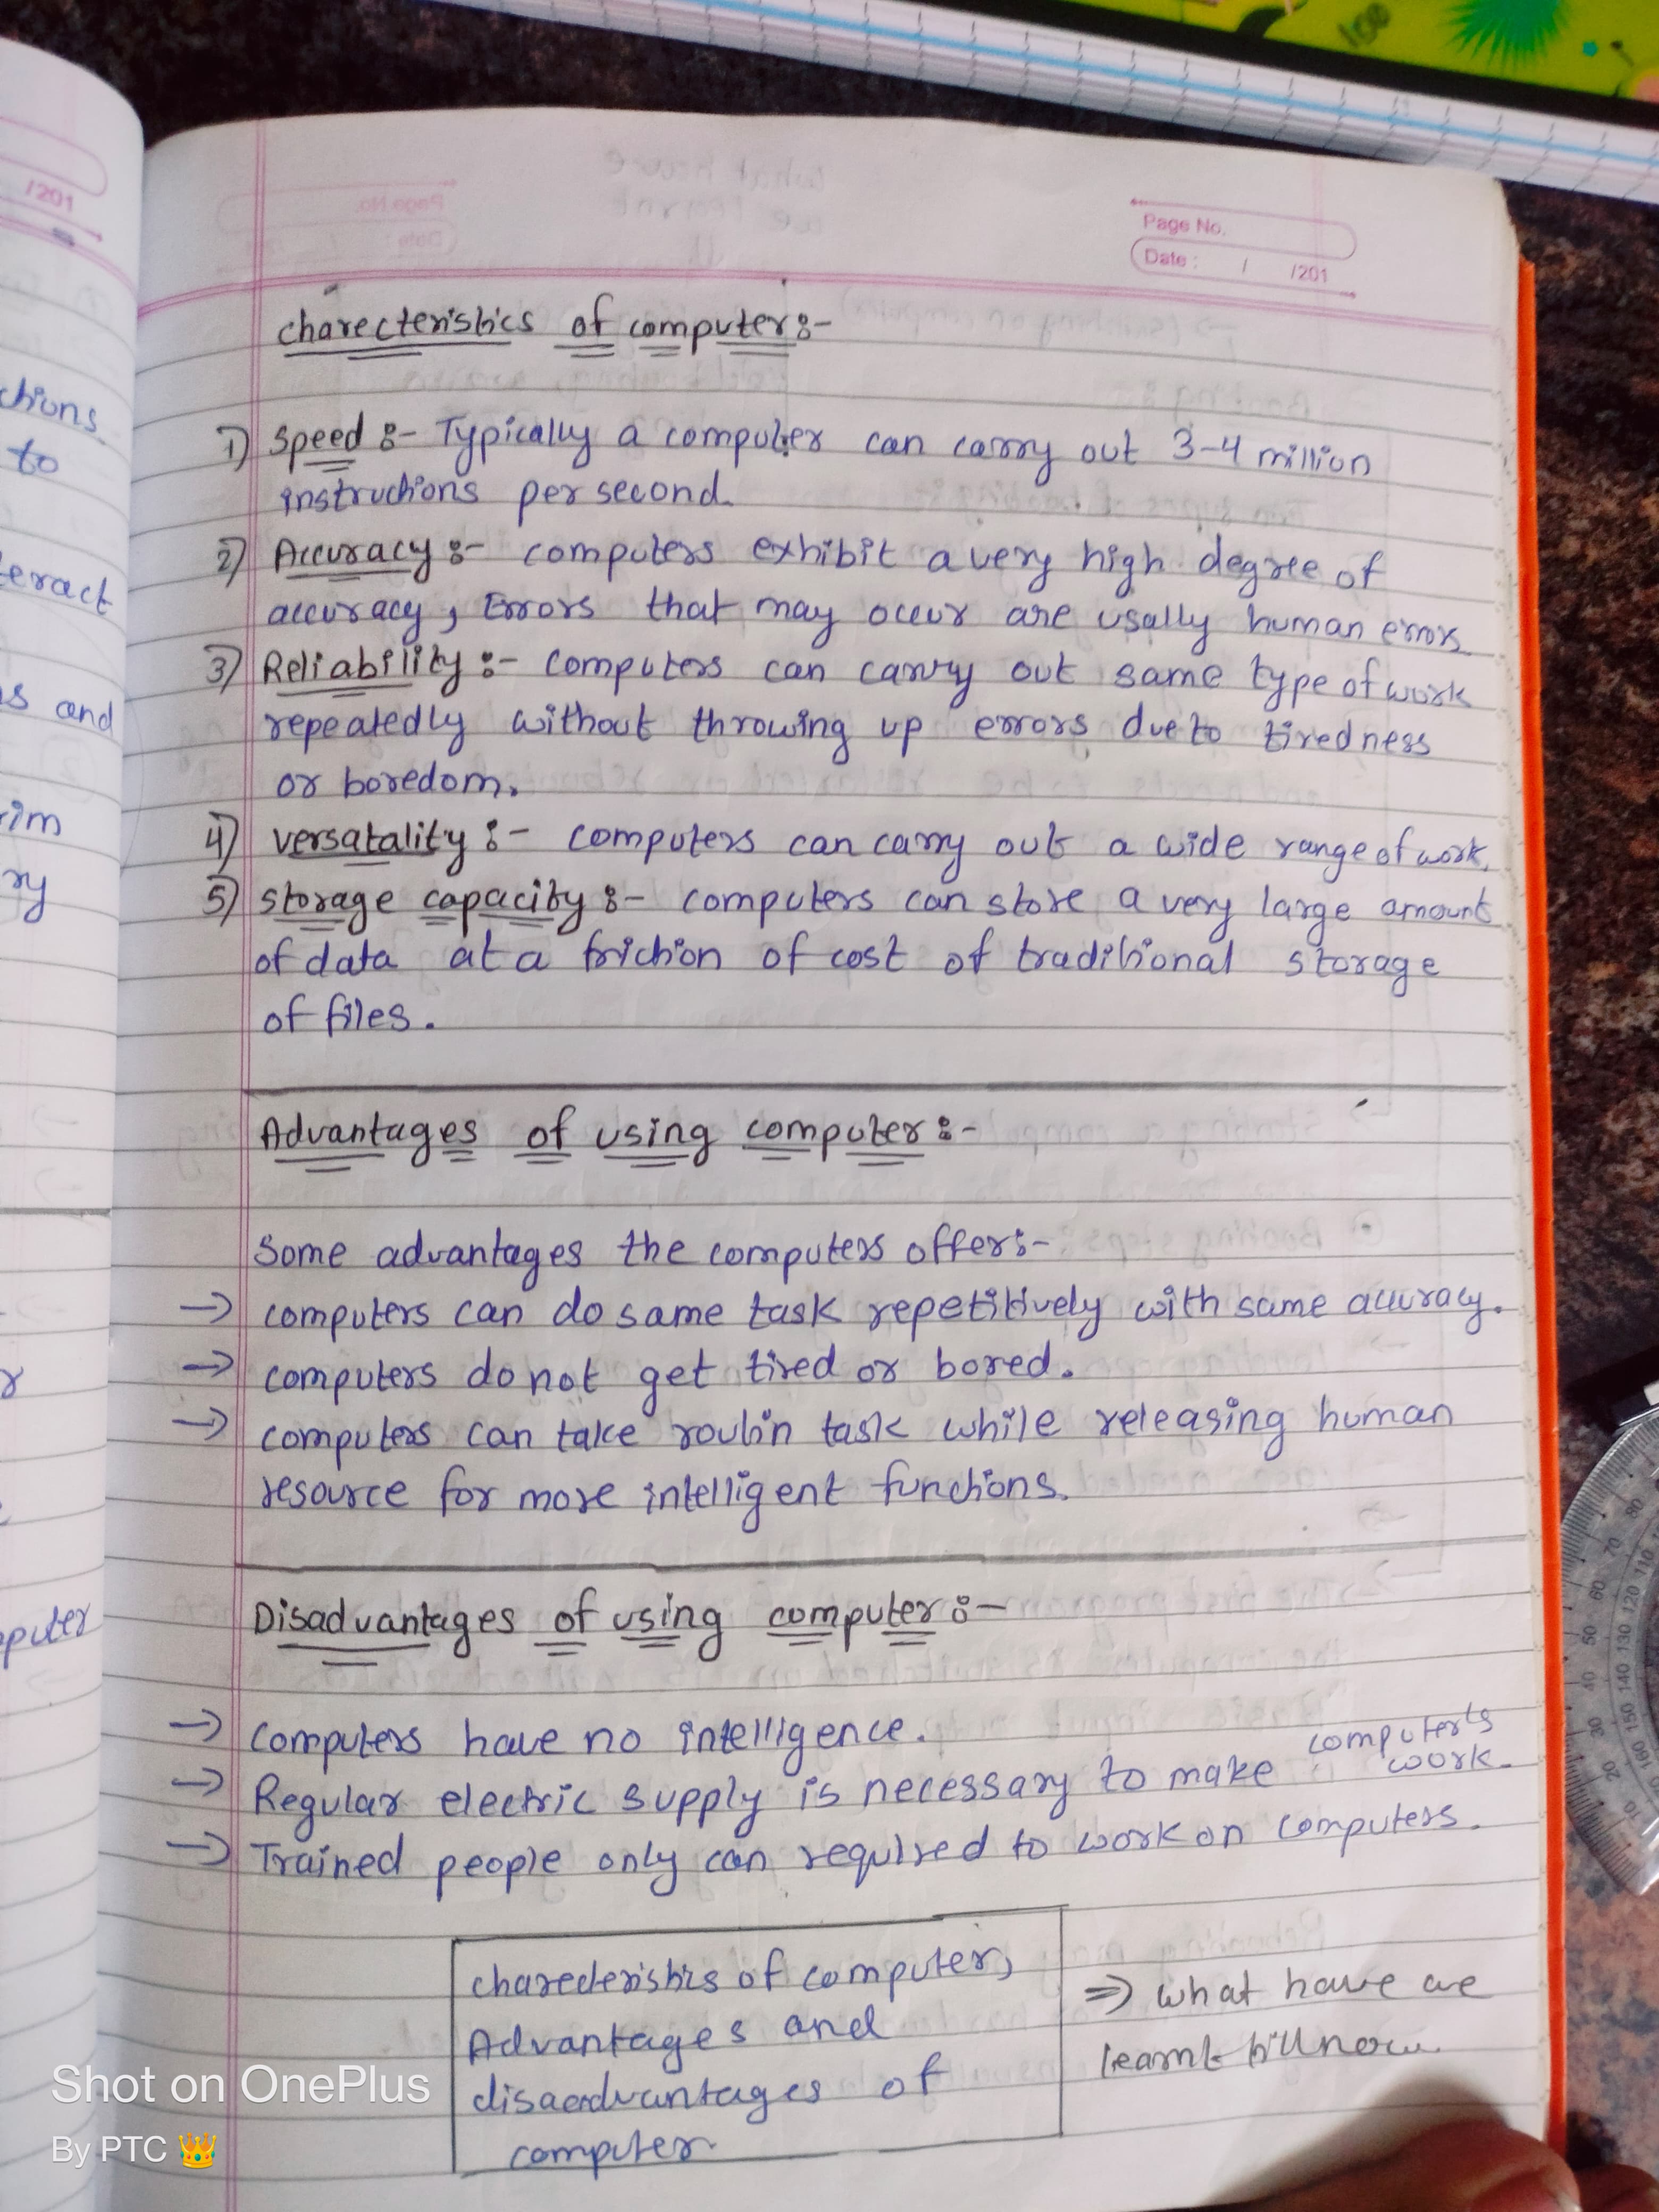 /201
Page No.
Date : / /201
charecteristics of computer :-
1) Speed :- Typically a computer can carry out 3-4 million
instructions per second.
2) Accuracy :- computers exhibit a very high degree of
accuracy, Errors that may occur are usally human errors.
3) Reliability :- computers can carry out same type of work
repeatedly without throwing up errors due to tiredness
or boredom.
4) versatality :- computers can carry out a wide range of work.
5) storage capacity :- computers can store a very large amount
of data at a friction of cost of traditional storage
of files.
Advantages of using computer :-
Some advantages the computers offer :-
→ computers can do same task repetitively with same accuracy.
→ computers do not get tired or bored.
→ computers can take routin task while releasing human
resource for more intelligent functions.
Disadvantages of using computer :-
→ computers have no intelligence.
→ Regular electric supply is necessary to make computers
work.
→ Trained people only can required to work on computers.
charecteristics of computer,
Advantages and
disaedvantages of
computer.
⇒ what have we
learnt till now.
ctions
to
teract
s and
rim
ry
puter
100
Shot on OnePlus
By PTC 👑